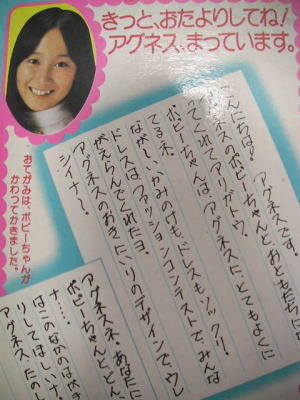 きっと、おたよりしてね!
アグネス、まっています。
おてがみは、ポピーちゃんが
かわってかきました。
こんにちは! アグネスです。
アグネスのポピーちゃんとおともだちに
なってくれてアリガトウ。
ポピーちゃんは、アグネスに、とてもよくに
てるネ。
ながーい、かみのけも、ドレスもソックリ!
ドレスは、ファッションコンテストで、みんな
がえらんでくれたヨ。
アグネスのおきにいりのデザインで、ウレ
シイナ〜。
アグネスネ、あなたに
ポピーちゃんと、どん
ナ……
はこのなかのはがき
りしてほしいナ。
アグネス、たのし